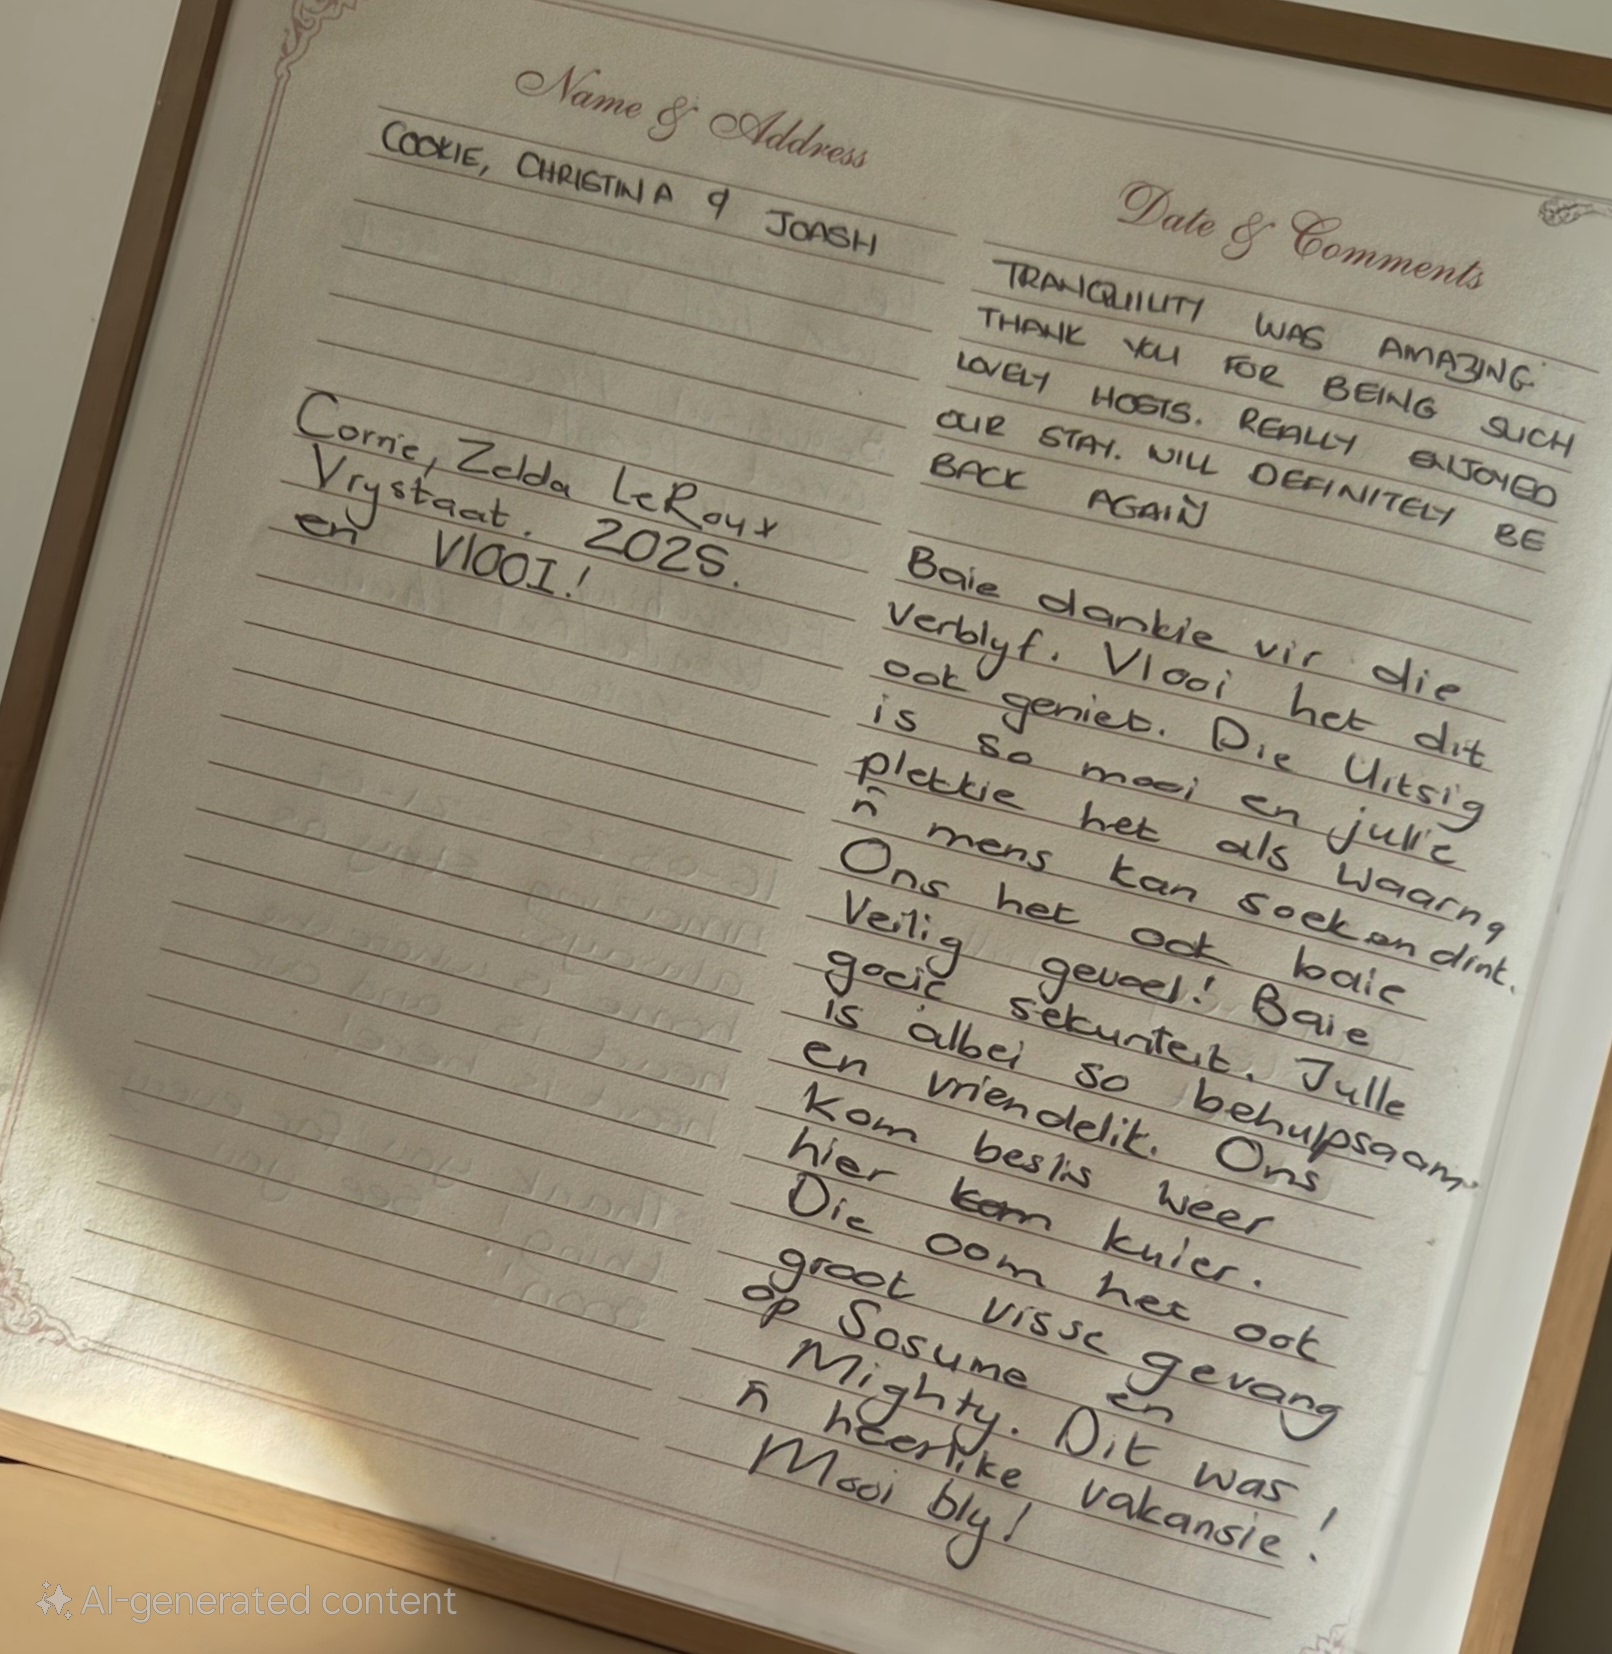 Name & Address
COOKIE, CHRISTINA & JOASH
Corrie, Zelda LeRoux
Vrystaat. 2025.
en VlOOI!
Date & Comments
TRANQUILITY WAS AMAZING
THANK YOU FOR BEING SUCH
LOVELY HOSTS. REALLY ENJOYED
OUR STAY. WILL DEFINITELY BE
BACK AGAIN
Baie dankie vir die
verblyf. Vlooi het dit
ook geniet. Die Uitsig
is so mooi en julle
plekkie het als waarna
ň mens kan soek en dink.
Ons het ook baie
Veilig gevoel! Baie
goeie sekuriteit. Julle
is albei so behulpsaam
en vriendelik. Ons
kom beslis weer
hier kuier.
Die oom het ook
groot visse gevang
op Sosume en
Mighty. Dit was
ň heerlike vakansie!
Mooi bly!
AI-generated content